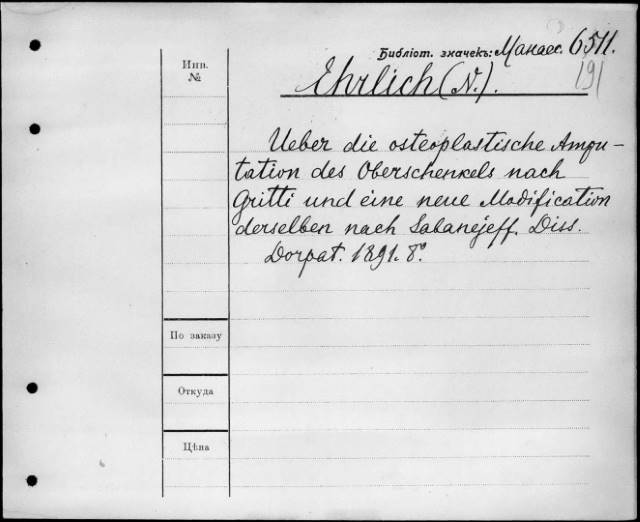 Библіот. значекъ: Манас. 6511.
191
Инв.
№
Ehrlich (N.).
Ueber die osteoplastische Ampu-
tation des Oberschenkels nach
Gritti und eine neue Modification
derselben nach Sabanejeff. Diss.
Dorpat. 1891. 8°.
По заказу
Откуда
Цѣна